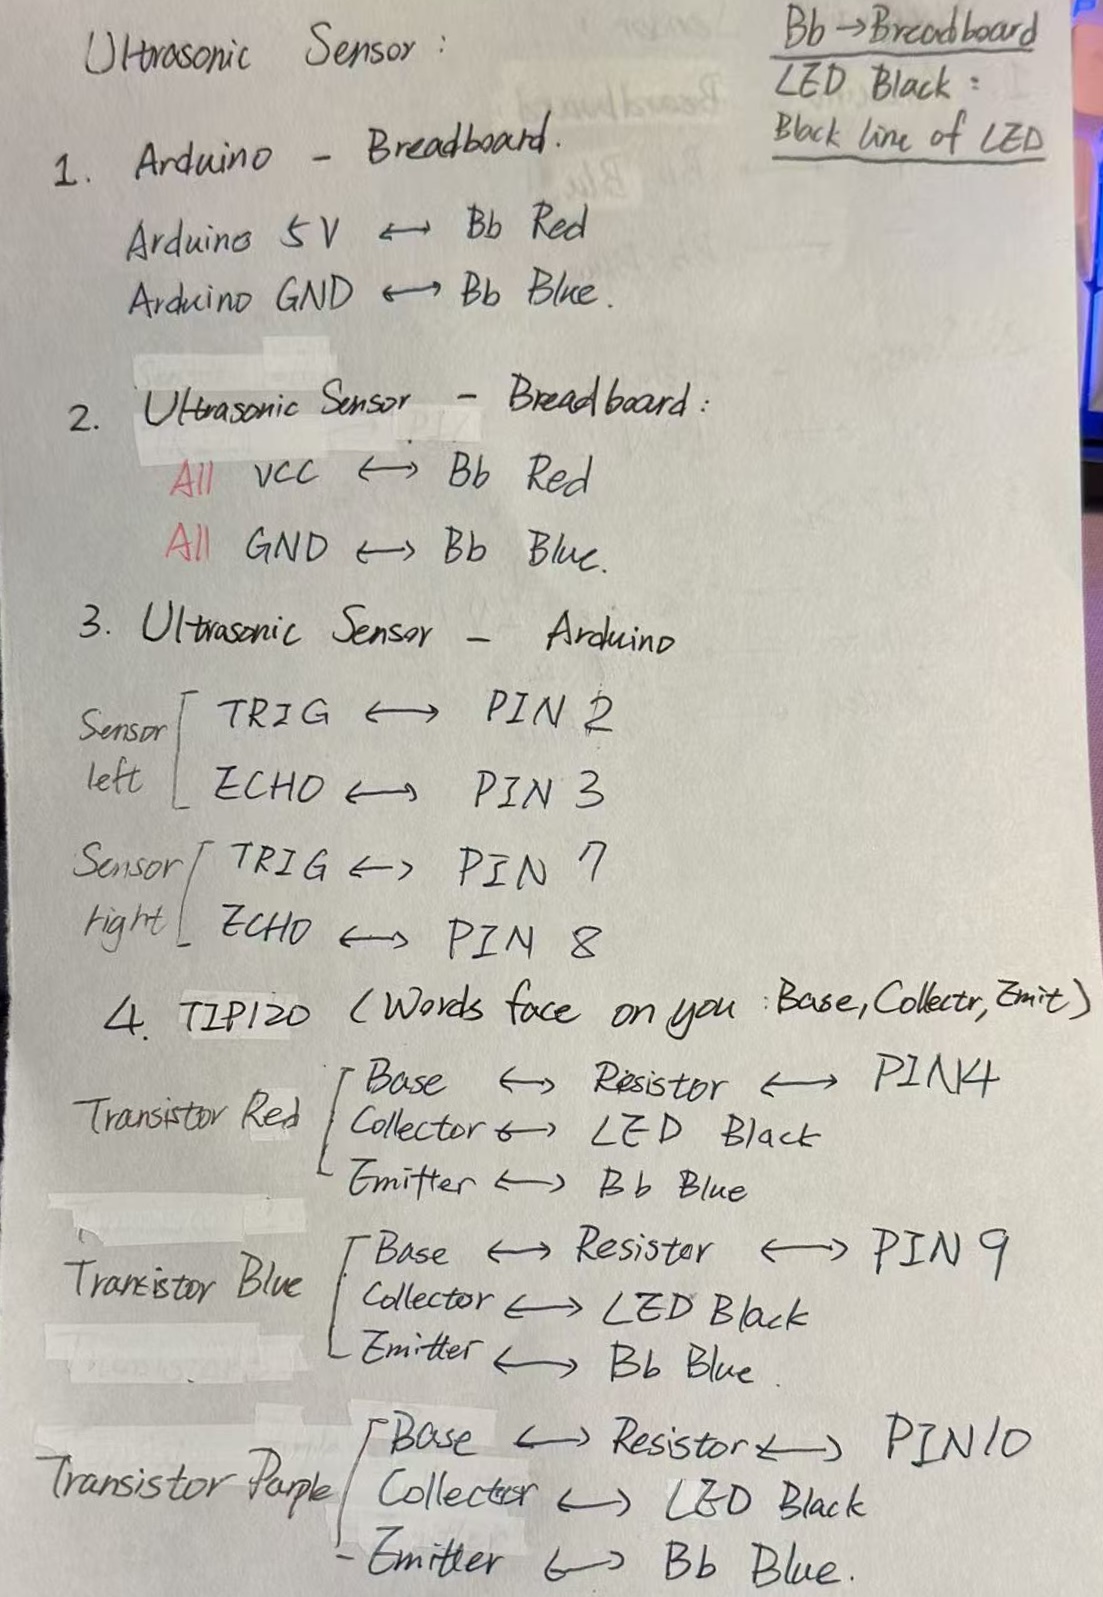 Ultrasonic Sensor :
Bb → Breadboard
LED Black :
Black line of LED
1. Arduino - Breadboard.
Arduino 5V ↔ Bb Red
Arduino GND ↔ Bb Blue.
2. Ultrasonic Sensor - Breadboard :
All VCC ↔ Bb Red
All GND ↔ Bb Blue.
3. Ultrasonic Sensor - Arduino
Sensor left
TRIG ↔ PIN 2
ECHO ↔ PIN 3
Sensor right
TRIG ↔ PIN 7
ECHO ↔ PIN 8
4. TIP120 (Words face on you : Base, Collectr, Emit)
Transistor Red
Base ↔ Resistor ↔ PIN4
Collector ↔ LED Black
Emitter ↔ Bb Blue
Transistor Blue
Base ↔ Resistor ↔ PIN 9
Collector ↔ LED Black
Emitter ↔ Bb Blue.
Transistor Purple
Base ↔ Resistor ↔ PIN10
Collector ↔ LED Black
Emitter ↔ Bb Blue.